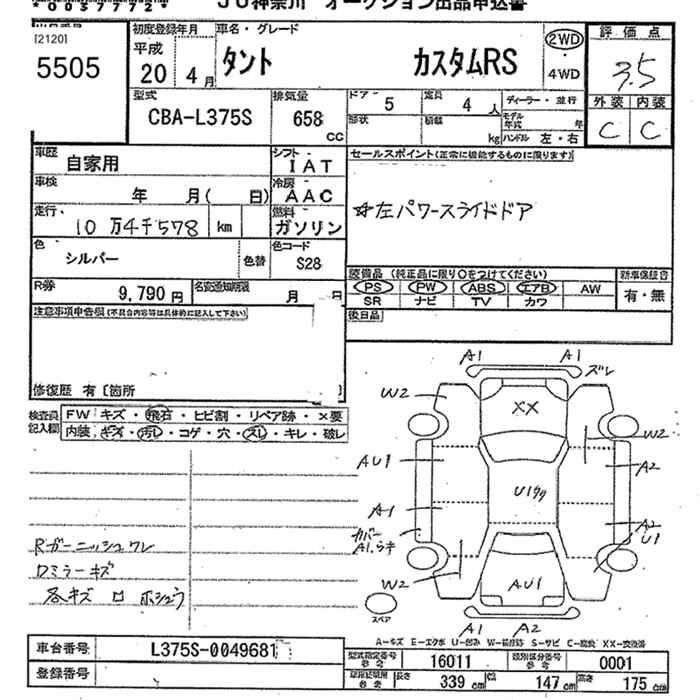 JU神奈川 オークション出品申込書
[2120]
5505
初度登録年月
平成
20年 4月
車名・グレード
タント カスタムRS
2WD
・
4WD
評価点
3.5
外装 内装
C C
型式
CBA-L375S
排気量
658
CC
ドア・
形状
5
定員
積載
4人
kg
ディーラー・並行
モデル年式 年
ハンドル 左・右
車歴
自家用
シフト
IAT
車検
年 月( 日)
冷房
AAC
走行
10万4千578 km
燃料
ガソリン
色
シルバー
色替
色コード
S28
R券
9,790円
名変通知期限
月 日
セールスポイント(正常に機能するものに限ります)
☆左パワースライドドア
装備品 (純正品に限り○をつけてください)
PS PW ABS エアB AW
SR ナビ TV カワ
新車保証書
有・無
後日品
注意事項申告欄(不具合内容等は具体的に記入して下さい)
修復歴 有[箇所 ]
検査員
記入欄
FW キズ・飛石・ヒビ割・リペア跡・×要
内装 キズ・汚レ・コゲ・穴・スレ・キレ・破レ
Rガーニッシュワレ
Dミラーキズ
各キズ ロ ホシュウ
A1 A1 ズレ
W2
XX
W2
AU1
A2
U1
A1
A2
U1
カバー
A1
W2
AU1
スペア
A1 A2
A-キズ E-エクボ U-凹み W-補修跡 S-サビ C-腐食 XX-交換済
車台番号
L375S-0049681
登録番号
型式指定番号
参考
16011
類別区分番号
参考
0001
車検証記載
参考
長さ
339cm
幅
147cm
高さ
175cm